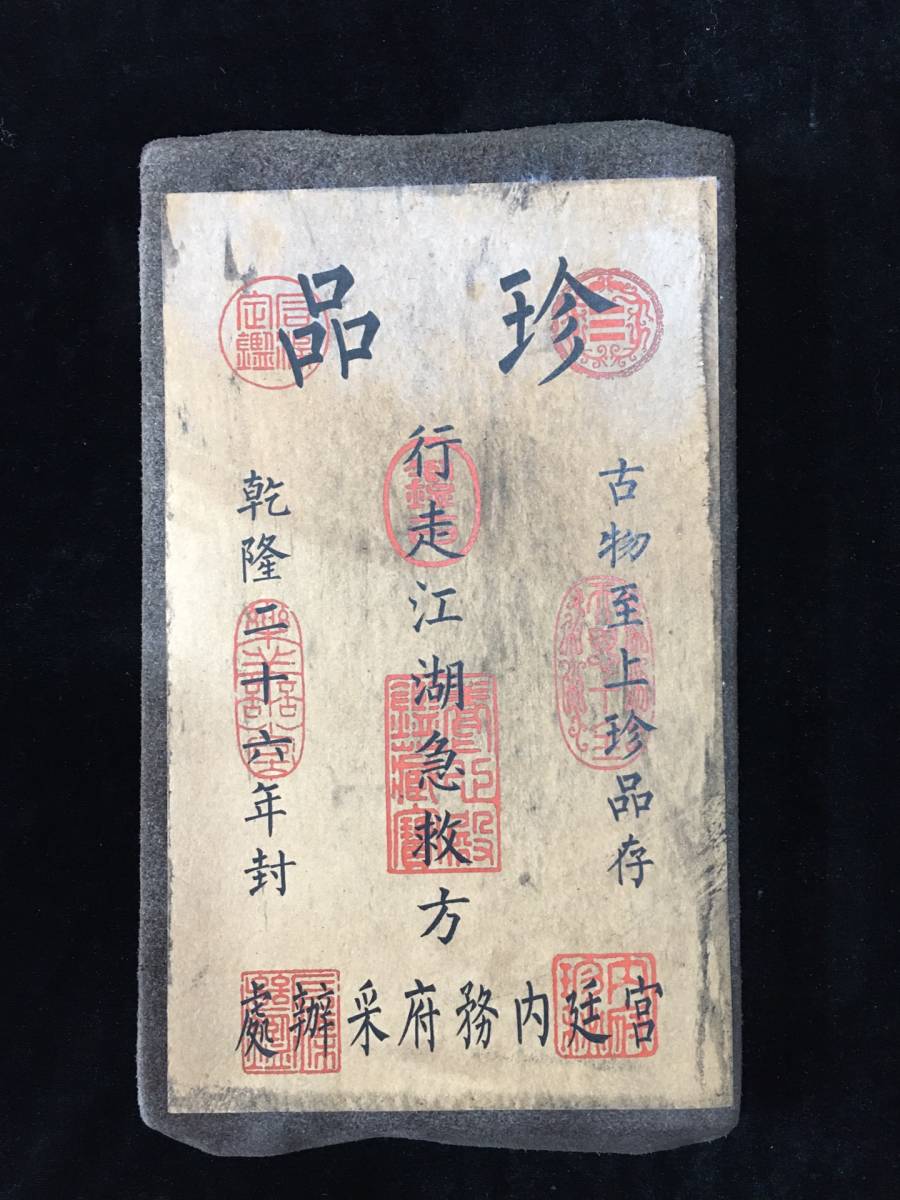 珍品
古物至上珍品存
行走江湖急救方
乾隆二十六年封
宮廷內務府采辦處